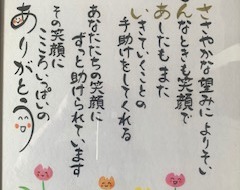 ささやかな望みによりそい
どんなときも笑顔で
あしたもまた
いきていくことの
手助けをしてくれる
あなたたちの笑顔に
ずっと助けられています
その笑顔に
こころいっぱいの
ありがとう